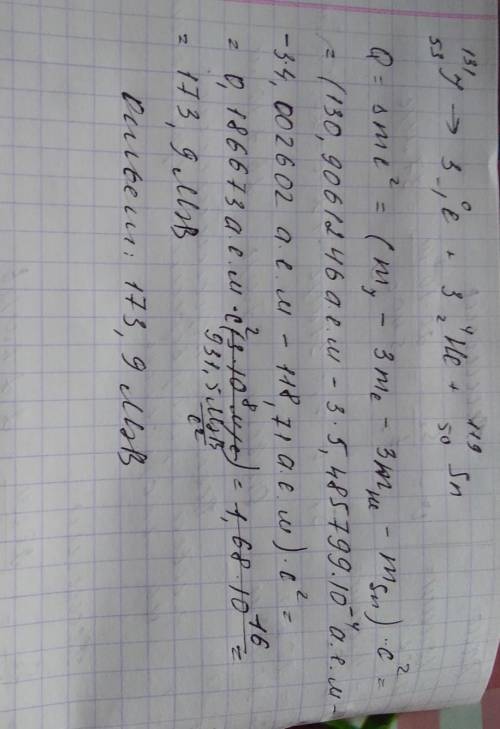 ¹³¹₅₃У → 3 ⁰₋₁e + 3 ⁴₂He + ¹¹⁹₅₀Sn
Q = Δmc² = (m_У − 3m_e − 3m_He − m_Sn)·c² =
= (130,9061246 а.е.м − 3·5,485799·10⁻⁴ а.е.м −
−3·4,002602 а.е.м − 118,71 а.е.м)·c² =
= 0,186673 а.е.м·c² (3·10⁸ м/с) = 1,68·10⁻¹⁶ =
931,5 МэВ/c²
= 173,9 МэВ
Ответ: 173,9 МэВ